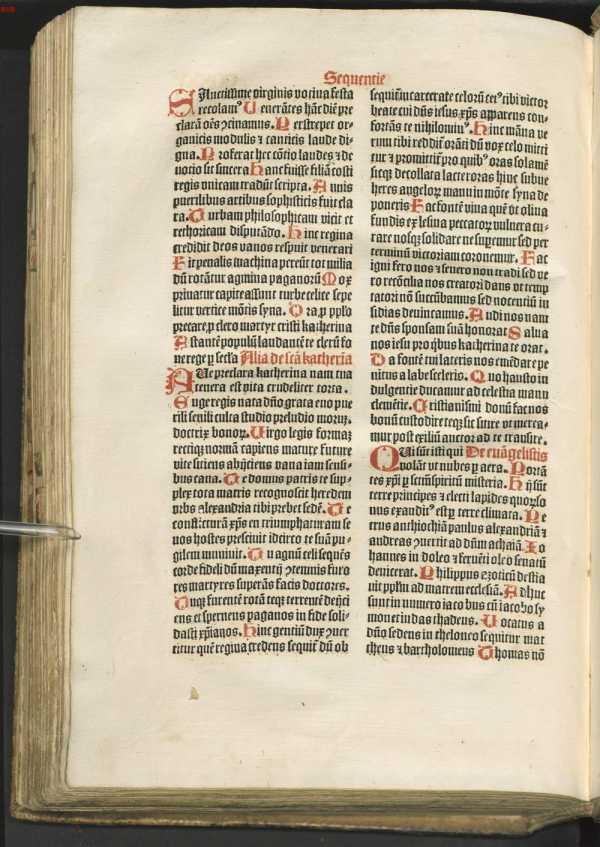 Sequentie
Sanctissime virginis votiua festa
recolam⁹ Venerātes hāc diē pre
clarā oēs ↄcinamus. Perstrepet or
ganicis modulis & canticis laude di
gna. Proferat hec cōtio laudes & de
uotio sit sincera Hanc fuisse filiā costi
regis vnicam tradūt scripta. Annis
puerilibus artibus sophisticis fuit cla
ra. Turbam philosophicam vicit et
rethoricam disputādo. Hinc regina
credidit deos vanos respuit venerari
Fit penalis machina pereūt tot milia
dū rotātur agmina paganorū Mox
priuatur capite assunt turbe celice sepe
litur vertice mōtis syna. Ora, p pplo
precare, p clero martyr cristi katherina
Astante populū laudante te clerū fo
ne rege p secla Alia de scā katheria
Aue preclara katherina nam tua
tenera est vita crudeliter torta.
Euge regis nata dño grata euo pue
rili senili culta studio preludio moruȝ
doctrix bonoꝝ. Virgo legis formaȝ
rectiqȝ normā rapiens mature future
vite sitiens abijciens vana iam sensi
bus cana. Te domus patris te sup
plex tota matris recognoscit heredem
vrbs alexandria tibi prebet sedē. Te
constāturā xp̄s en triumphaturam se
uos hostes presciuit idcirco te suā pu
gilem inuniuit. Tu agnū celi sequēs
corde fideli dum maxentij ↄtemnis furo
res martyres superās facis doctores.
Tuqȝ furentē rotā teqȝ terrentē deijci
ens et spernens paganos in fide soli
dasti xp̄ianos. Hinc gentiū dux ↄuer
titur quē regina credens sequit̄ dū ob
sequiū incarcerate celorū cet⁹ tibi victor
beate cui dñs iesus xp̄s apparens con
fortās te nihilomin⁹. Hinc māna ve
rum tibi reddit̄ orāti dū vox celo mitti
tur & promittit̄ pro quib⁹ oras solamē
sicqȝ decollata lacte roras hinc subue
heris angeloꝝ manu in mōte syna de
poneris Fac fontē viua quē vt oliua
fundis ex lesina peccatoꝝ vulnera cu-
rare nosqȝ solidare ne suꝑemur sed per
terminū victoriam coronemur. Fac
igni fero nos & seuero non tradi sed ve
ro recōcilia nos creatori dans vt temp
tatori nō succūbamus sed nocentiū in
sidias deuincamus. Audi nos nam
te dñs sponsam suā honorat Salua
nos iesu pro qbus katherina te orat.
Da fonte cui lateris nos emēdare pe
nitus a labe sceleris. Quo hausto in
dulgentie ducamur ad celestia manu
clemētie. Cristianismi donū fac nos
bonū custodire teqȝ sic finire vt merea-
mur post exiliū auctor ad te transire.
Qui sunt isti qui De euāgelistis
volāt vt nubes p aera. Portā
tes xp̄i p secl̄m spiritū misteria. Hij sūt
terre principes & electi lapides quorsō
nus exaudit⁹ est p terre climata. Pe
trus anthiochiā paulus alexandriā &
andreas ↄuertit ad dñm achaiā. Io
hannes in doleo & feruēti oleo senatū
deuicerat. Philippus exoticū destia
uit ppl̄m ad matrem ecclesiā. Adhuc
sunt in numero iaco bus cū iacobo sy
mon et iudas thadeus. Vocatus a
dño sedens in theloneo sequitur mat
theus & bartholomeus Thomas nō